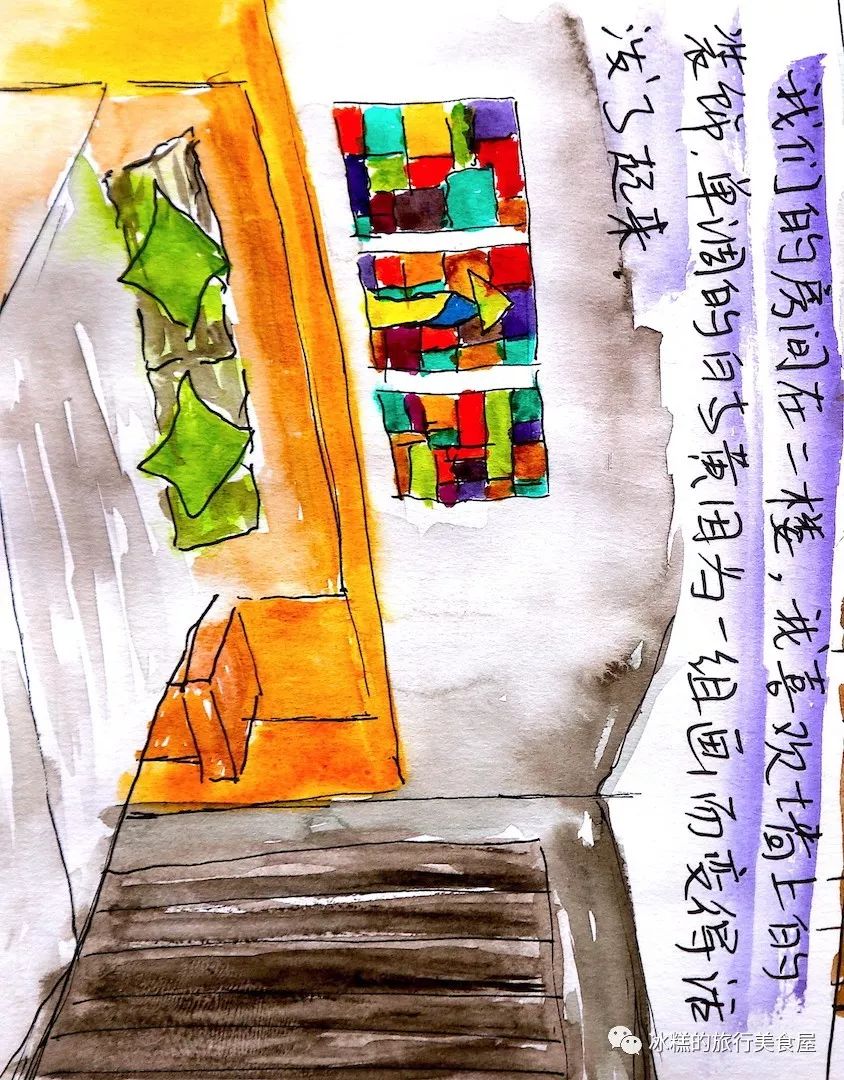 我们的房间在二楼，我喜欢墙上的
装饰.单调的白与黄因为一组画而变得活
泼了起来.
冰糕的旅行美食屋